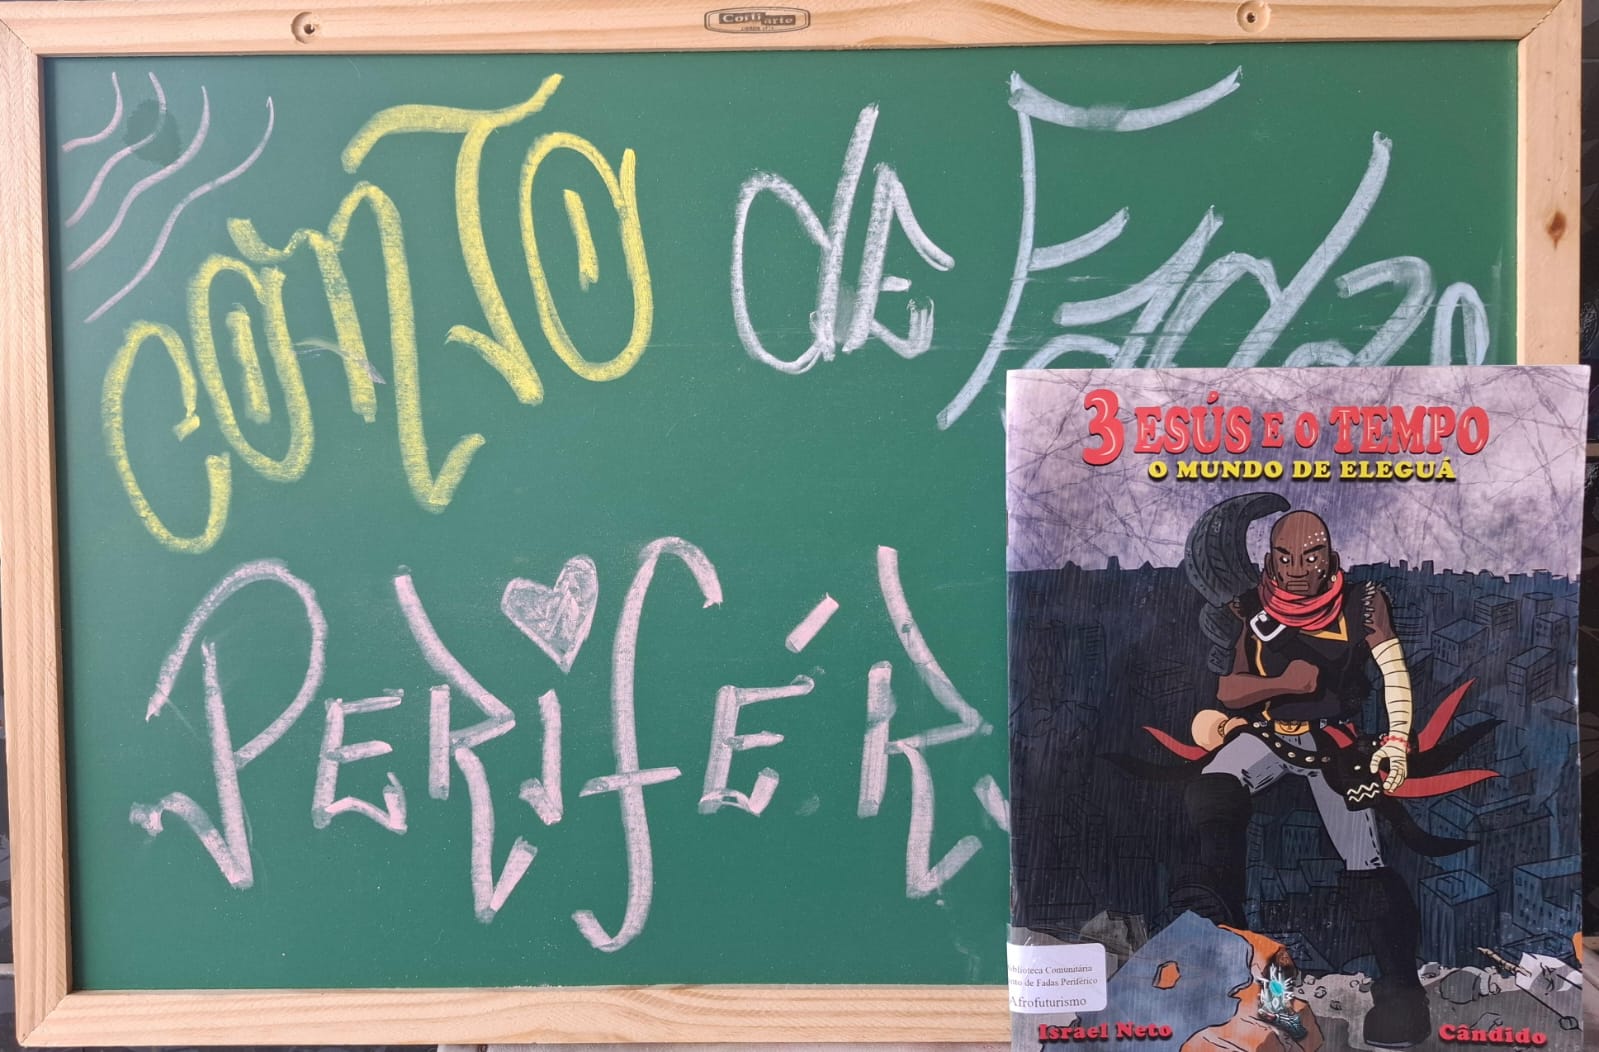 Cortiarte
CONTO de FAdas
PERIFÉRI
3 ESÚS E O TEMPO
O MUNDO DE ELEGUÁ
iblioteca Comunitária
onto de Fadas Periférico
Afrofuturismo
Israel Neto
Cândido